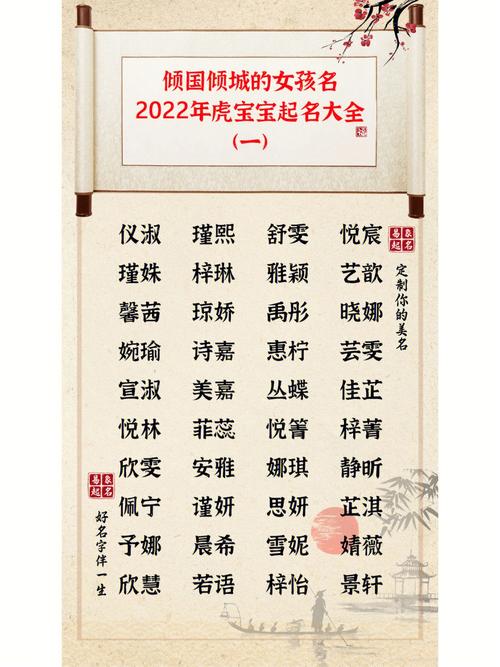 倾国倾城的女孩名
2022年虎宝宝起名大全
（一）
仪淑 瑾熙 舒雯 悦宸
瑾姝 梓琳 雅颖 艺歆
馨茜 琼娇 禹彤 晓娜
婉瑜 诗嘉 惠柠 芸雯
宣淑 美嘉 丛蝶 佳芷
悦林 菲蕊 悦箐 梓菁
欣雯 安雅 娜琪 静昕
佩宁 谨妍 思妍 芷淇
予娜 晨希 雪妮 婧薇
欣慧 若语 梓怡 景轩
易象
起名
定制你的美名
易象
起名
好名字伴一生